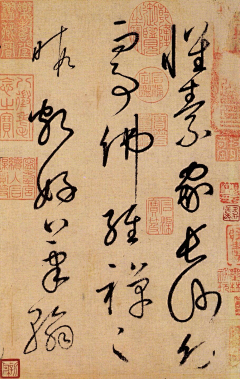 懷素家長沙幼
而事佛經禪之
暇頗好筆翰